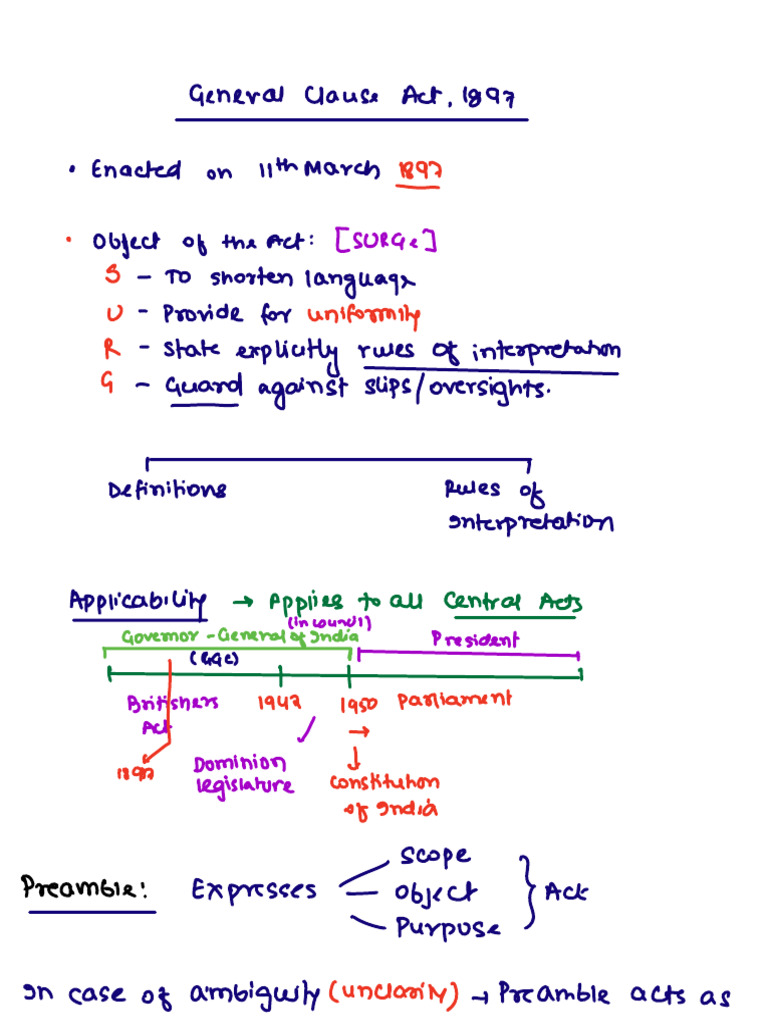 General Clause Act, 1897
• Enacted on 11th March 1897
• Object of the Act: [SURGe]
S - To shorten language
U - Provide for uniformity
R - State explicitly rules of interpretation
G - Guard against slips/oversights.
Definitions Rules of
Interpretation
Applicability → Applies to all Central Acts
(in council)
Governor-General of India President
(GGC)
Britishers 1947 1950 Parliament
Act →
1897 Dominion constitution
legislature of India
Scope
Preamble: Expresses Object Act
Purpose
In case of ambiguity (unclarity) → Preamble acts as